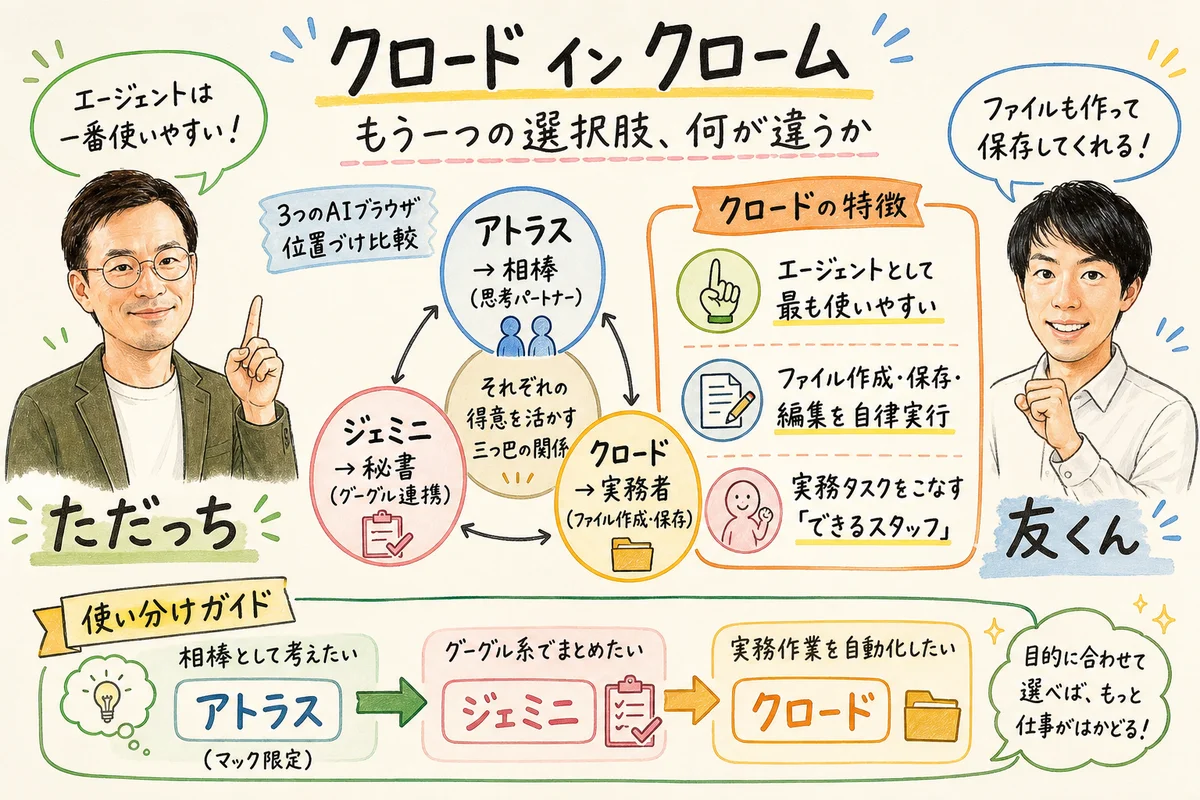 クロード イン クローム
もう一つの選択肢、何が違うか
エージェントは
一番使いやすい!
ファイルも作って
保存してくれる!
ただっち
友くん
3つのAIブラウザ
位置づけ比較
アトラス
→ 相棒
(思考パートナー)
それぞれの
得意を活かす
三つ巴の関係
ジェミニ
→ 秘書
(グーグル連携)
クロード
→ 実務者
(ファイル作成・保存)
クロードの特徴
エージェントとして
最も使いやすい
ファイル作成・保存・
編集を自律実行
実務タスクをこなす
「できるスタッフ」
使い分けガイド
相棒として考えたい
アトラス
(マック限定)
グーグル系でまとめたい
ジェミニ
実務作業を自動化したい
クロード
目的に合わせて
選べば、もっと
仕事がはかどる!